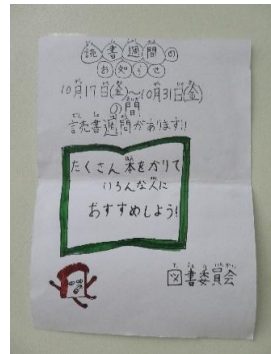 読書週間の
お知らせ
10月17日(金)～10月31日(金)
の間
読書週間があります!!
たくさん本をかりて
いろんな人に
おすすめしよう!
図書委員会